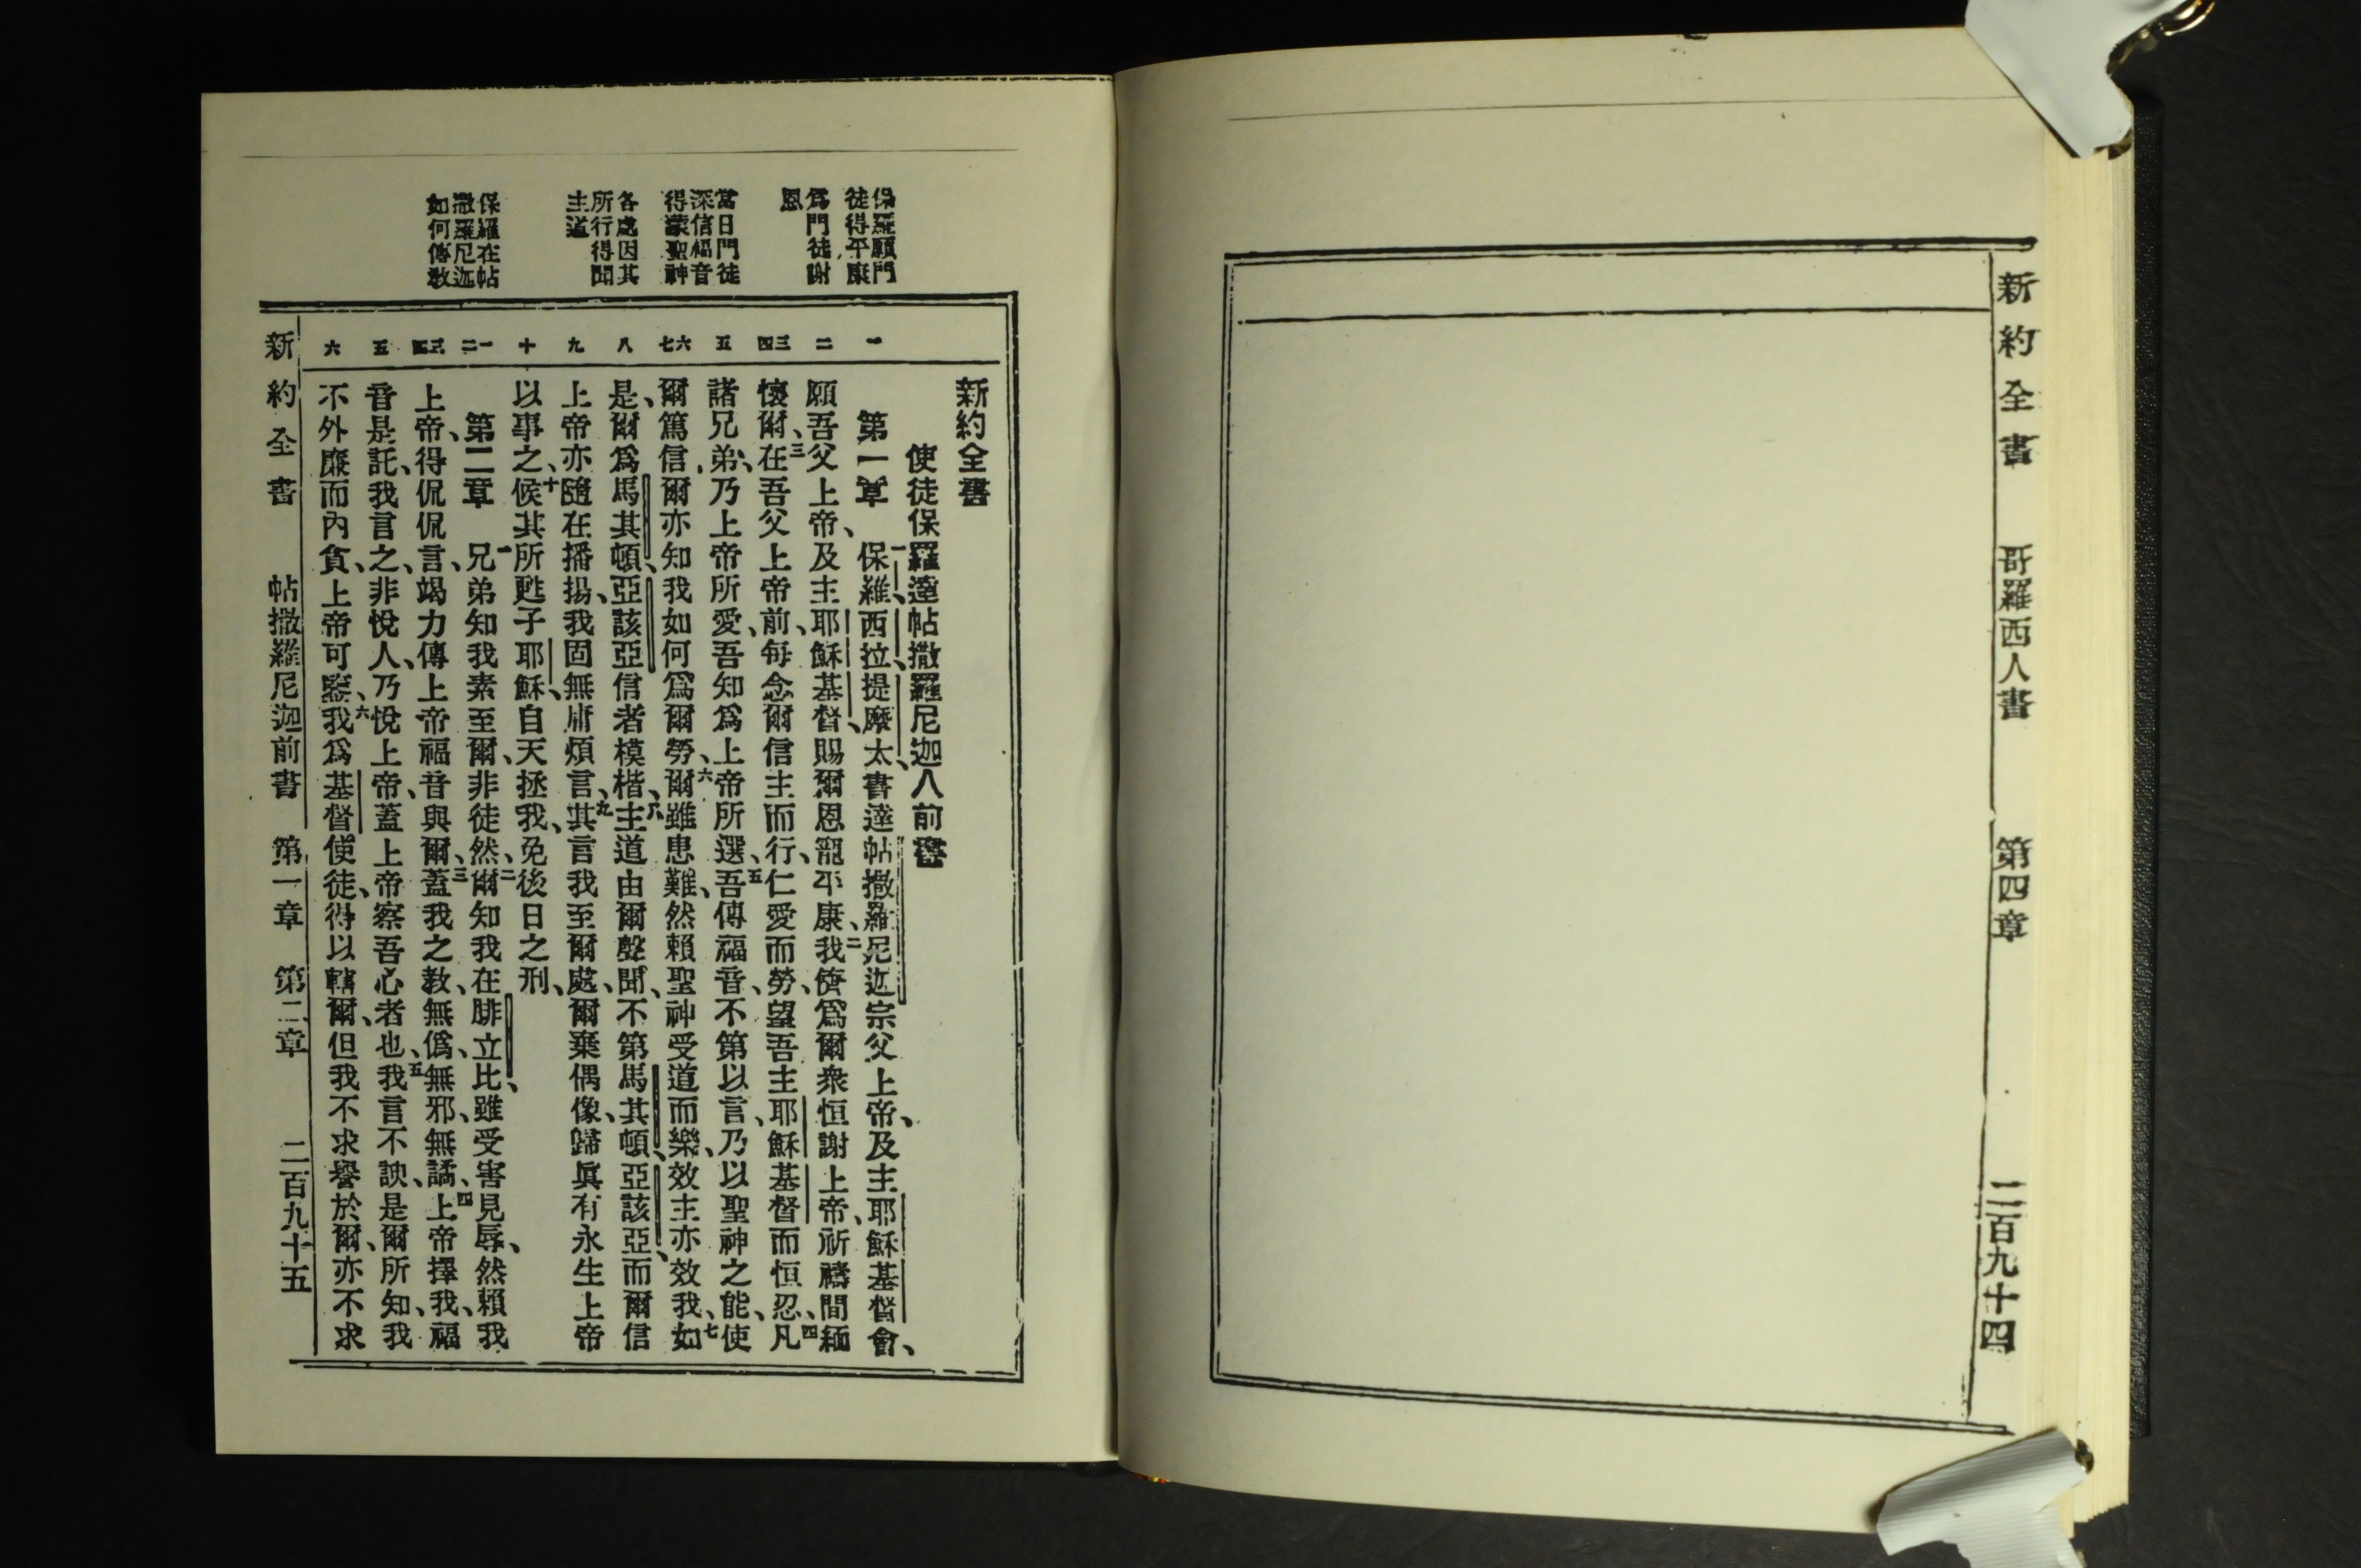 新約全書 哥羅西人書 第四章 二百九十四
保羅願門
徒得平康
爲門徒謝
恩
當日門徒
深信福音
得蒙聖神
各處因其
所行得聞
主道
保羅在帖
撒羅尼迦
如何傳教
一
二
三四
五
六七
八
九
十
一二
三四
五
六
新約全書
使徒保羅達帖撒羅尼迦人前書
第一章 一保羅、西拉、提摩太、書達帖撒羅尼迦宗父上帝、及主耶穌基督會、
願吾父上帝、及主耶穌基督、賜爾恩寵平康、二我儕爲爾衆恒謝上帝、祈禱間、緬
懷爾、三在吾父上帝前、每念爾信主而行、仁愛而勞、望吾主耶穌基督而恒忍、四凡
諸兄弟、乃上帝所愛、吾知爲上帝所選、五吾傳福音、不第以言、乃以聖神之能、使
爾篤信、爾亦知我如何爲爾勞、六爾雖患難、然賴聖神受道而樂、效主亦效我、七如
是、爾爲馬其頓、亞該亞信者模楷、八主道由爾聲聞、不第馬其頓、亞該亞、而爾信
上帝亦隨在播揚、我固無庸煩言、九其言我至爾處、爾棄偶像、歸眞有永生上帝
以事之、十候其所甦子耶穌、自天拯我、免後日之刑、
第二章 一兄弟知我素至爾、非徒然、二爾知我在腓立比、雖受害見辱、然賴我
上帝、得侃侃言、竭力傳上帝福音與爾、三蓋我之教、無僞、無邪、無譎、四上帝擇我、福
音是託、我言之、非悅人、乃悅上帝、蓋上帝察吾心者也、五我言不諛、是爾所知、我
不外廉而內貪、上帝可鑒、六我爲基督使徒、得以轄爾、但我不求譽於爾、亦不求
新約全書 帖撒羅尼迦前書 第一章 第二章 二百九十五